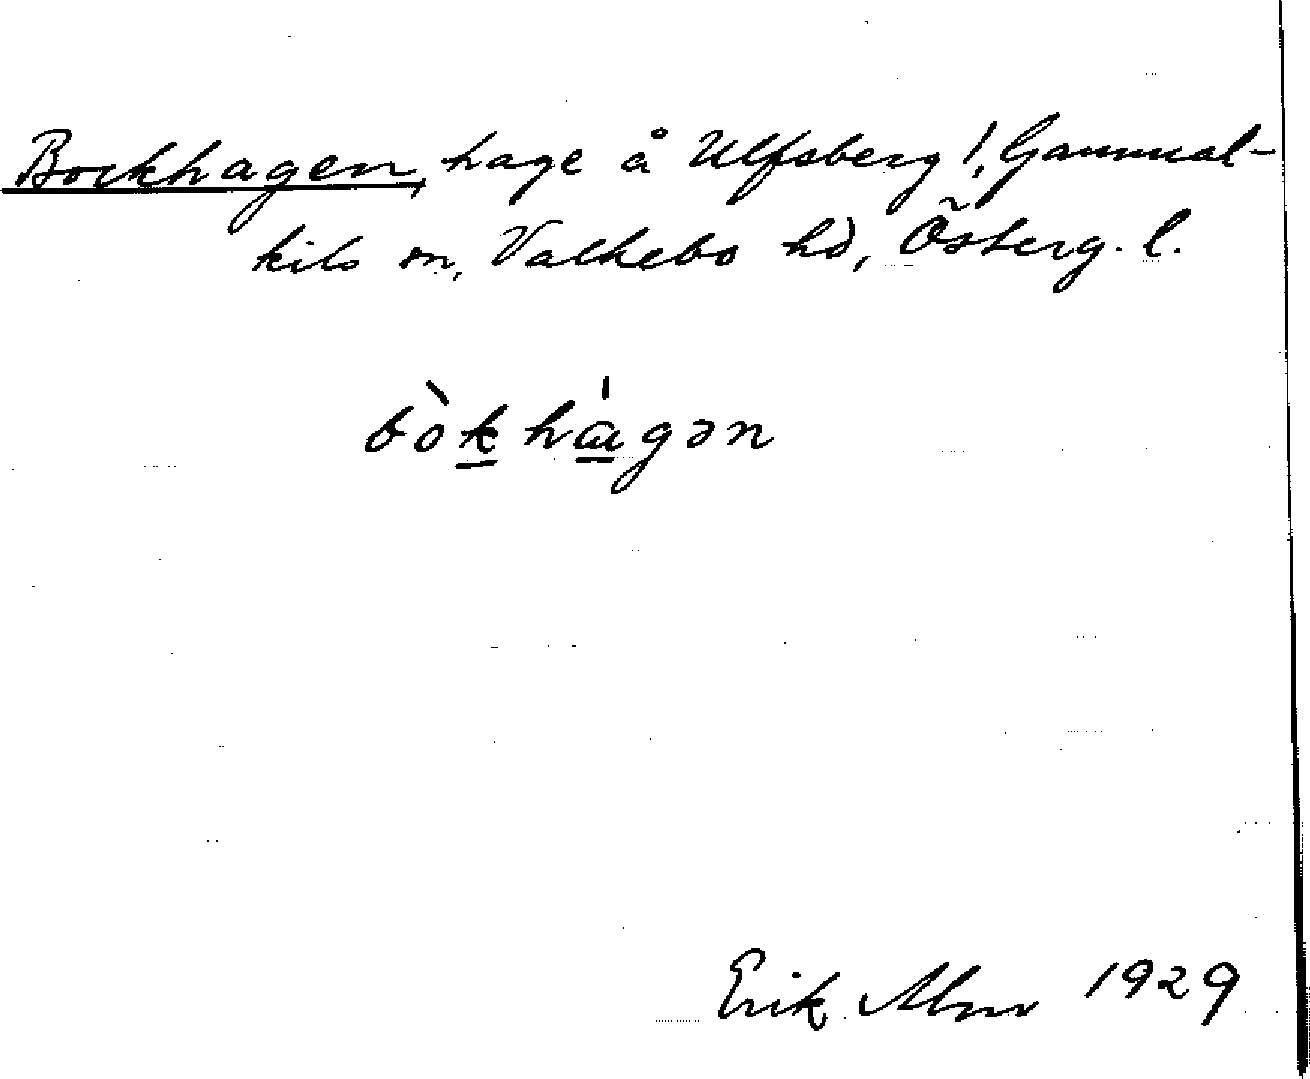 Bockhagen, hage å Ulfsberg!, Gammal-
kils sn, Valkebo hd, Österg. l.
bòk hàgən
Erik Alm 1929